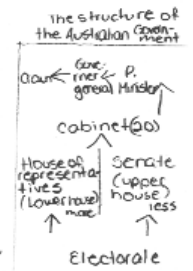 The structure of
the Australian Govern-
ment
Crown Gove- P.
rner Minister
general
cabinet(20)
House of
representa-
tives
(Lowerhouse)
more
Senate
(upper
house)
less
Electorale